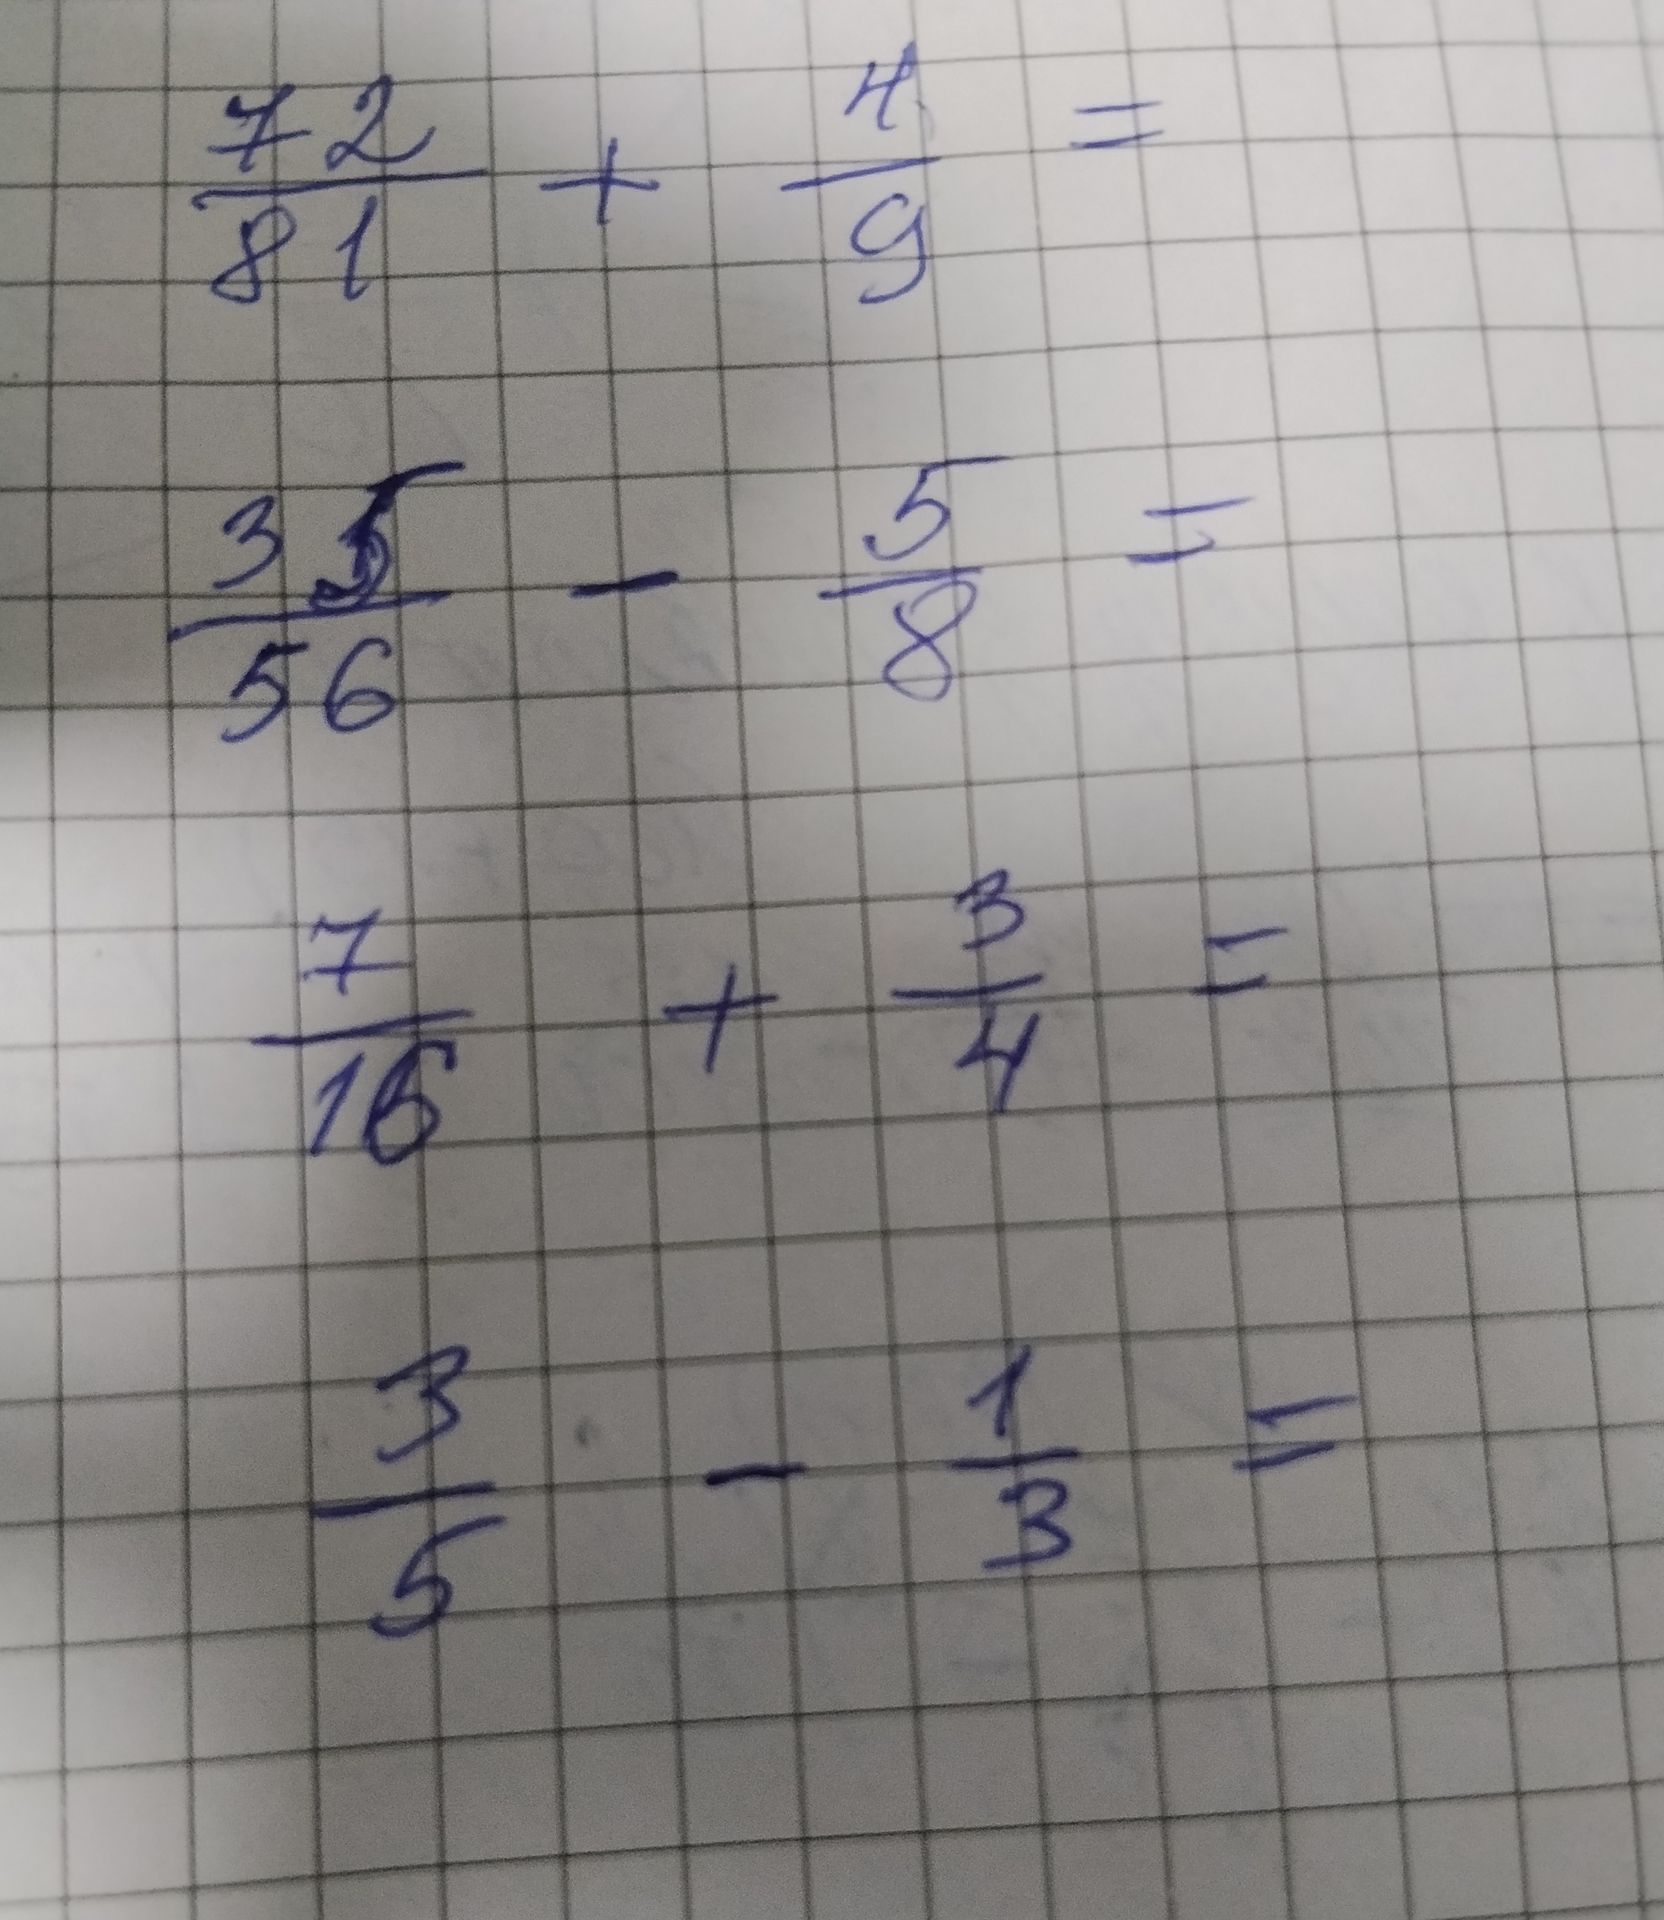 72/81 + 4/9 =
35/56 - 5/8 =
7/16 + 3/4 =
3/5 - 1/3 =